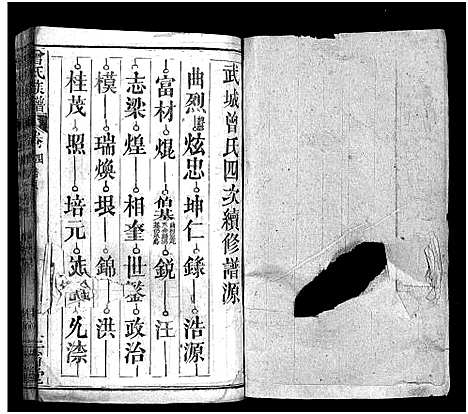 武城曾氏四次續修譜源
曲烈 炫忠 坤仁 錄 浩源
富材 焜 墓 銳 汪
志梁 煌 相奎 世鋻 政治
模 瑞煥 垠 錦 洪
桂茂 照 培元 允溁
曾氏族譜